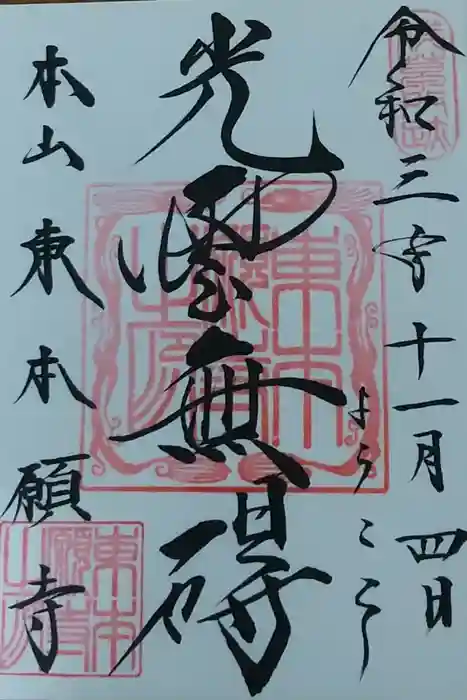 令和三年十一月四日
ようこそ
光雲無碍
本山東本願寺
東本願寺